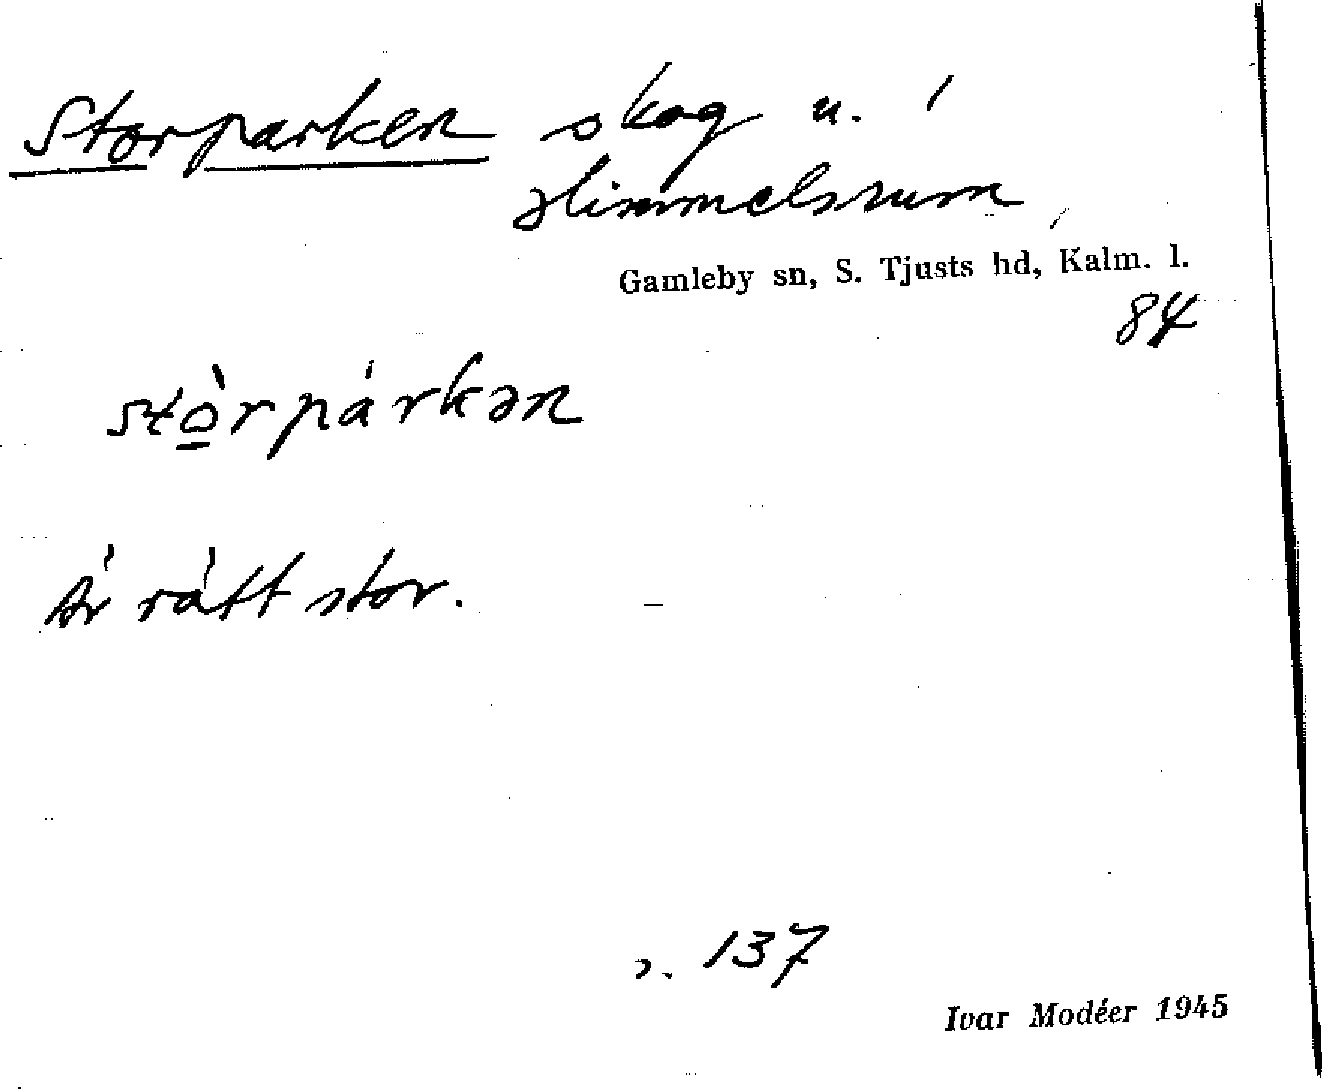 Storparken skog u. 1
Himmelsrum,
Gamleby sn, S. Tjusts hd, Kalm. l.
84
stò̱rpárkən
Är rätt stor.
s. 137
Ivar Modéer 1945